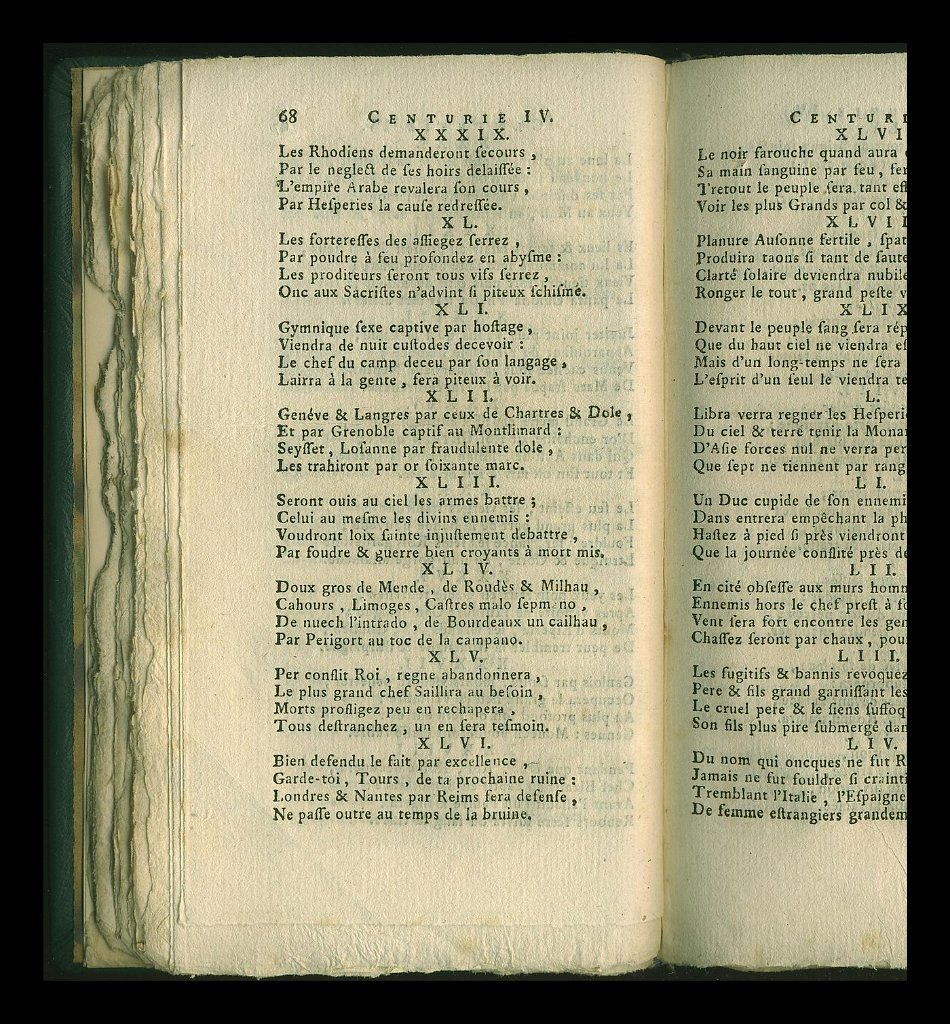 68 CENTURIE IV.
XXXIX.
Les Rhodiens demanderont ſecours ,
Par le neglect de ſes hoirs delaiſſée :
L'empire Arabe revalera ſon cours ,
Par Heſperies la cauſe redreſſée.
XL.
Les fortereſſes des aſſiegez ſerrez ,
Par poudre à feu profondez en abyſme :
Les proditeurs ſeront tous vifs ſerrez ,
Onc aux Sacriſtes n'advint ſi piteux ſchiſme.
XLI.
Gymnique ſexe captive par hoſtage ,
Viendra de nuit cuſtodes decevoir :
Le chef du camp deceu par ſon langage ,
Lairra à la gente , ſera piteux à voir.
XLII.
Genéve & Langres par ceux de Chartres & Dole ,
Et par Grenoble captif au Montlimard :
Seyſſet , Loſanne par fraudulente dole ,
Les trahiront par or ſoixante marc.
XLIII.
Seront ouis au ciel les armes battre ;
Celui au meſme les divins ennemis :
Voudront loix ſainte injuſtement debattre ,
Par foudre & guerre bien croyants à mort mis.
XLIV.
Doux gros de Mende , de Roudès & Milhau ,
Cahours , Limoges , Caſtres malo ſepm no ,
De nuech l'intrado , de Bourdeaux un cailhau ,
Par Perigort au toc de la campano.
XLV.
Per conflit Roi , regne abandonnera ,
Le plus grand chef Saillira au beſoin ,
Morts profligez peu en rechapera ,
Tous deſtranchez , un en ſera teſmoin.
XLVI.
Bien defendu le fait par excellence ,
Garde-toi , Tours , de ta prochaine ruine :
Londres & Nantes par Reims ſera defenſe ,
Ne paſſe outre au temps de la bruine.
CENTUR
XLVI
Le noir farouche quand aura
Sa main ſanguine par feu , fer
Tretout le peuple ſera tant eſ
Voir les plus Grands par col &
XLVII
Planure Auſonne fertile , ſpat
Produira taons ſi tant de ſaute
Clarté ſolaire deviendra nubile
Ronger le tout , grand peſte v
XLIX
Devant le peuple ſang ſera rép
Que du haut ciel ne viendra eſ
Mais d'un long-temps ne ſera
L'eſprit d'un ſeul le viendra te
L.
Libra verra regner les Heſperi
Du ciel & terre tenir la Mona
D'Aſie forces nul ne verra per
Que ſept ne tiennent par rang
LI.
Un Duc cupide de ſon ennemi
Dans entrera empêchant la ph
Haſtez à pied ſi près viendront
Que la journée conflité près de
LII.
En cité obſeſſe aux murs homm
Ennemis hors le chef preſt à ſo
Vent ſera fort encontre les gen
Chaſſez ſeront par chaux , pou
LIII.
Les fugitifs & bannis revoquez
Pere & fils grand garniſſant les
Le cruel pere & le ſiens ſuffoq
Son fils plus pire ſubmergé dan
LIV.
Du nom qui oncques ne fut R
Jamais ne fut fouldre ſi crainti
Tremblant l'Italie , l'Eſpaigne
De femme eſtrangiers grandem